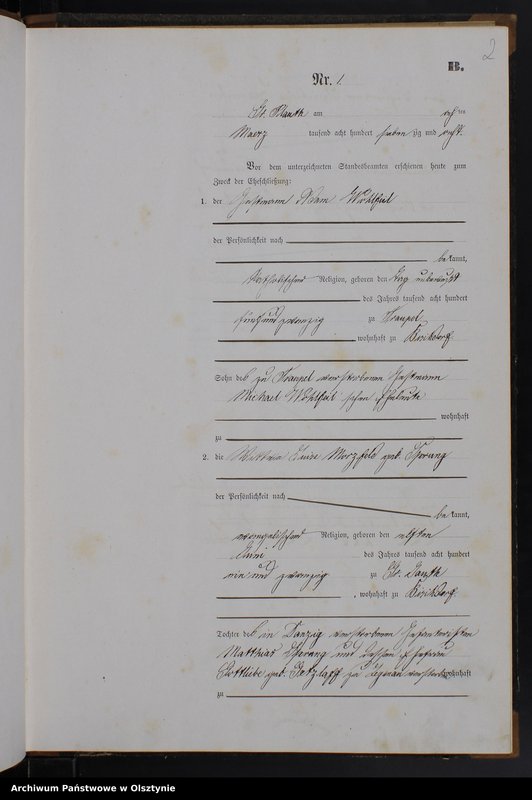 2
B.
Nr. 1.
Gr. Plauth am ach ten
Maerz tausend acht hundert sieben zig und acht
Vor dem unterzeichneten Standesbeamten erschienen heute zum
Zweck der Eheschließung:
1. der Instmann Adam Wohlfeil
der Persönlichkeit nach
be kannt,
katholischer Religion, geboren den Tag unbewußt
des Jahres tausend acht hundert
fünf und zwanzig zu Traupel
, wohnhaft zu
Sohn des zu Traupel verstorbenen Instmann
Michael Wohlfeil schen Eheleute
wohnhaft
zu
2. die Wittwe Luise geb.
der Persönlichkeit nach
be kannt,
evangelischer Religion, geboren den elften
Juni des Jahres tausend acht hundert
ein und zwanzig zu Gr.
, wohnhaft zu
Tochter des in Danzig verstorbenen
Matthias und dessen Ehefrau
Gottliebe geb. zu verstorben wohnhaft
zu
Archiwum Państwowe w Olsztynie